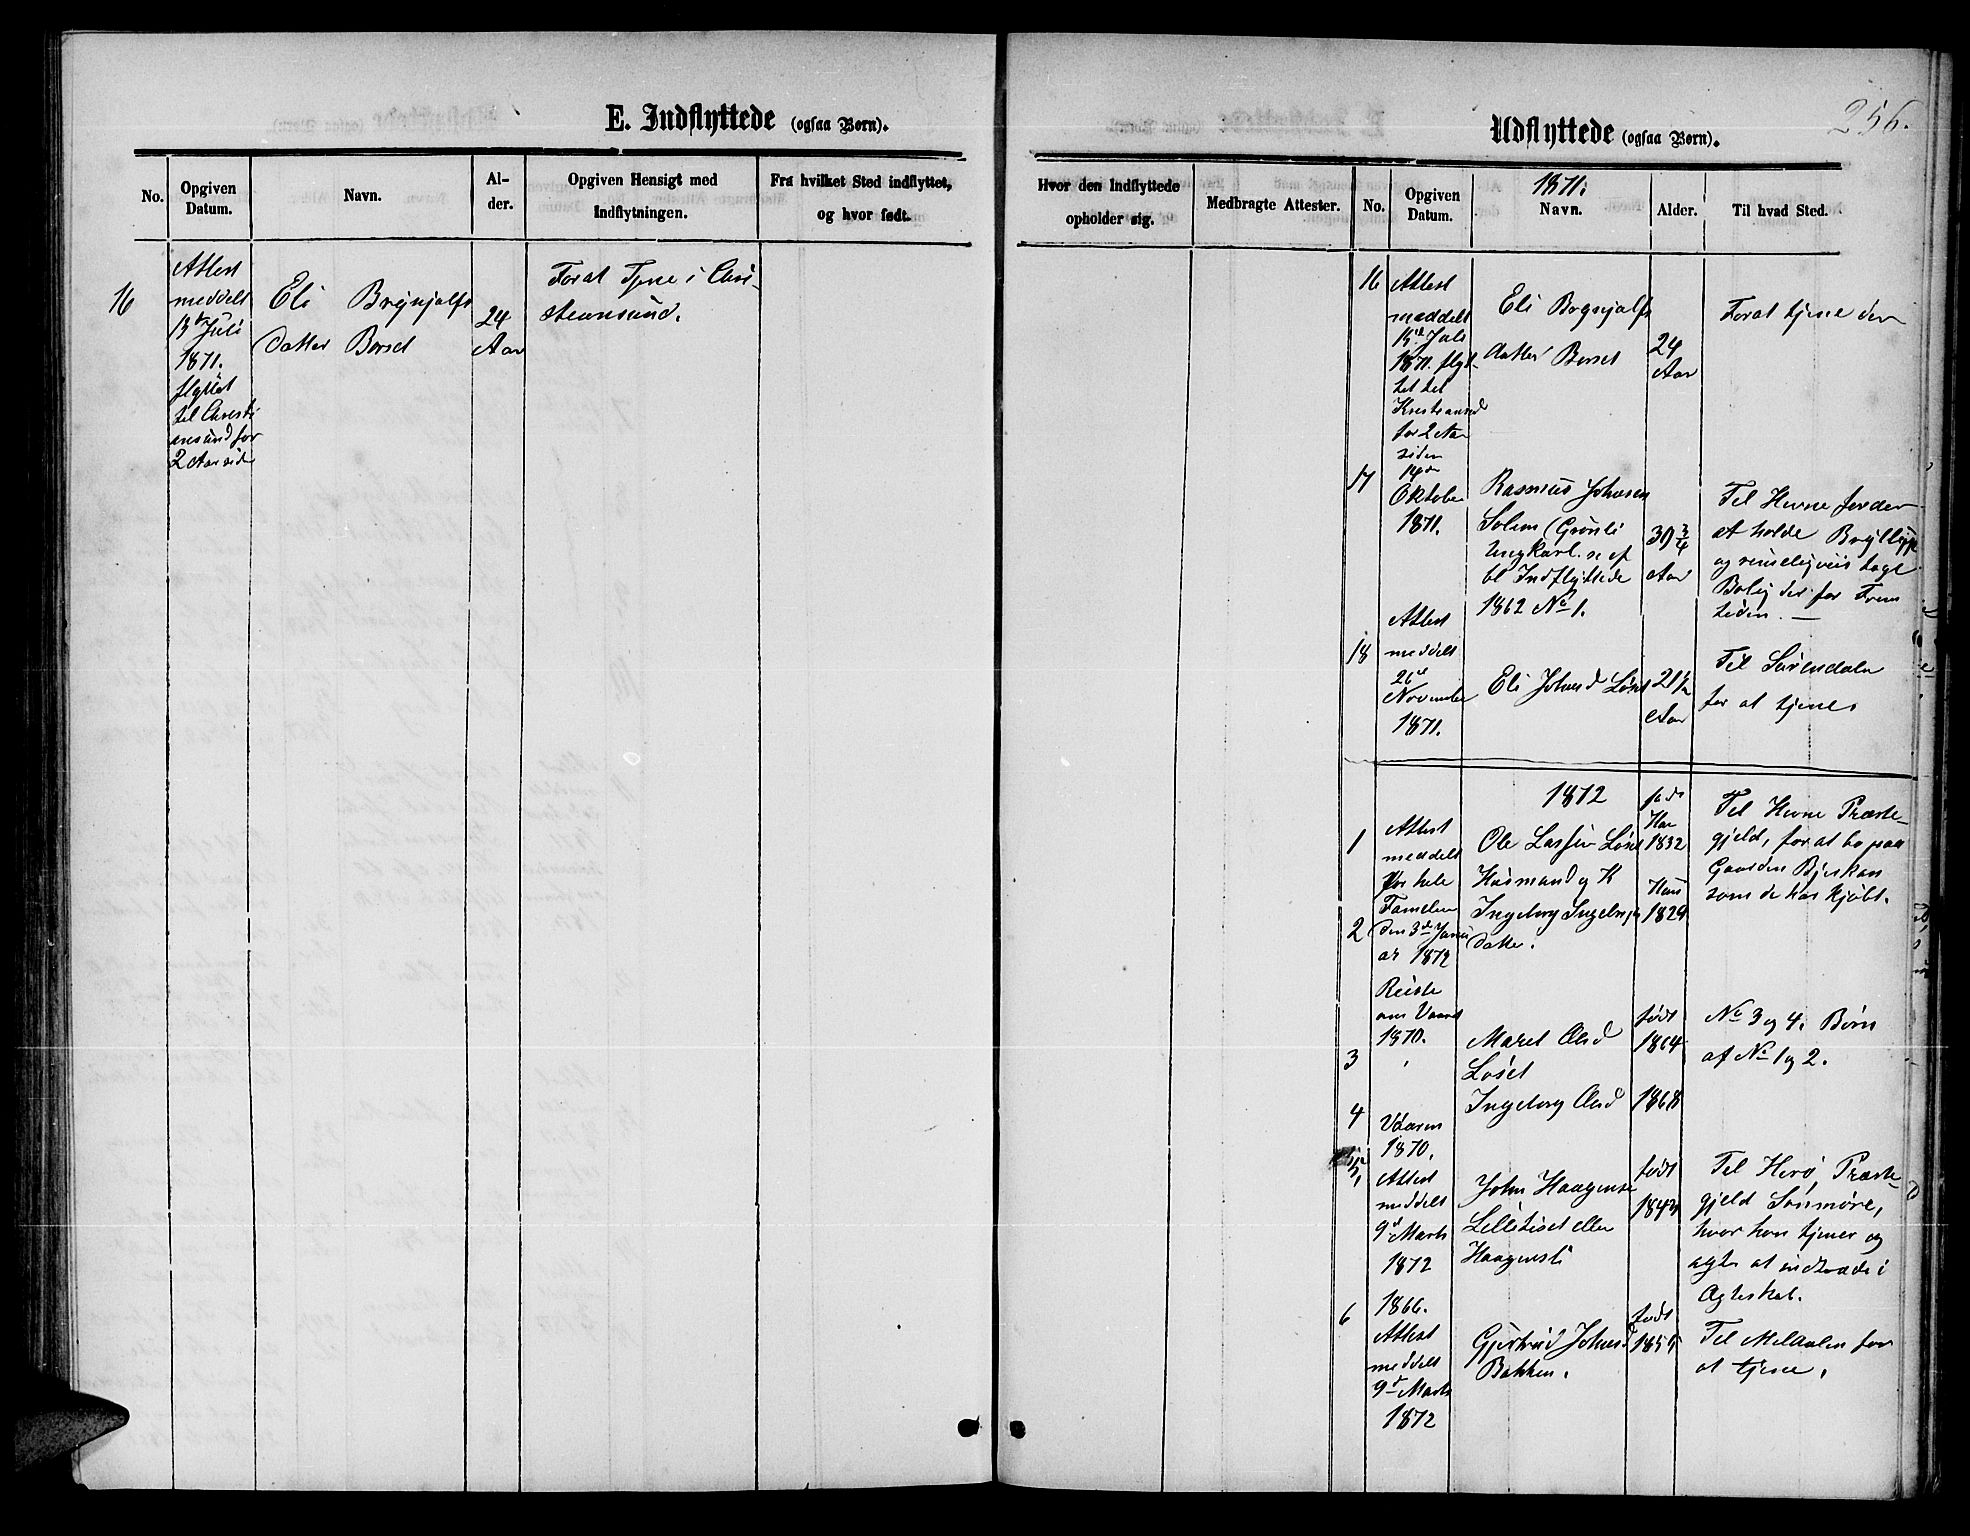 E. Indflyttede (ogsaa Børn).
No.
Opgiven
Datum.
Navn.
Al-
der.
Opgiven Hensigt med
Indflytningen.
Fra hvilket Sted indflyttet,
og hvor født.
16
Attest
meddelt
15de Juli
1871.
flyttet
til Christi
ansund for
2 Aar siden
Eli Brynjulfs
datter Børset
24
Aar
For at Tjene i Chri-
stiansund.
256.
Udflyttede (ogsaa Børn).
Hvor den Indflyttede
opholder sig.
Medbragte Attester.
No.
Opgiven
Datum.
1871.
Navn.
Alder.
Til hvad Sted.
16
Attest
meddelt
15de Juli
1871. flyt-
tet til
for 2 Aar
siden
Eli
datter Børset
24
Aar
For at tjene der
17
14de
Oktober
1871.
Rasmus Johnsen
Solem (Grønli
Ungkarl. 
bl Indflyttede
1862 No 1.
30 3/4
Aar
Til Hevne for der
at holde Bryllup
og rimeligviis tage
Bolig der for Frem
tiden. —
18
Attest
meddelt
26de
November
1871.
Eli Johnsd Løset
21 1/2
Aar
Til Surendalen
for at tjene.
1872
1
Attest
meddelt
for hele
Familien
2
den 3de Janu
ar 1872
Reiste
om Vaaret
1870.
Ole Larsen Løset
Husmand og K
Ingeborg
datter.
født
Han
1832
Hun
1829
Til Hevne Præste-
gjeld, for at bo paa
Gaarden
som de har kjøbt.
3
Maret Olsd
Løset
født
1864
No 3 og 4. Børn
af No 1 og 2.
4
Vaaren
1870.
Ingeborg Olsd
1868
5
Attest
meddelt
9de Marts
1872
John Haagensen
Lillistset eller
født
1843
Til Herø Præste-
gjeld Søndmøre,
hvor han tjener og
agter at indtræde i
Ægteskab.
6
1866.
Attest
meddelt
9de Marts
1872
Gjertrud Johnsd
Bakken.
født
1855
Til Meldalen for
at tjene.